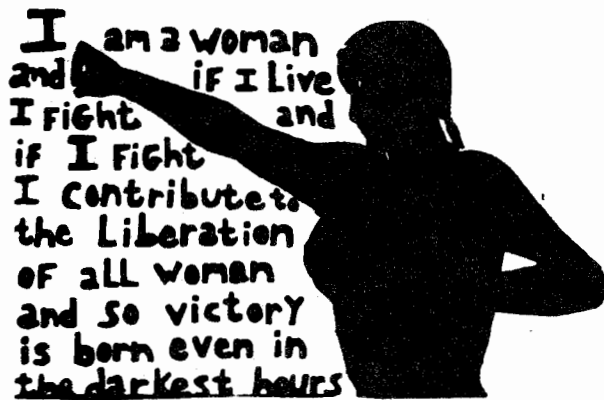 I am a woman
and if I Live
I FiGht and
if I FiGht
I contribute to
the Liberation
oF aLL woman
and so victory
is born even in
the darkest hours